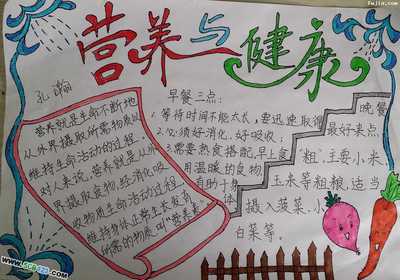 营养与健康
孔瀚
营养就是生命不断地
从外界摄取所需物质以
维持生命活动的过程,
对人来说,营养就是从外
界摄取食物,经消化吸
收物质生命活动的过程,
维持身体正常生长发育
所需的物质叫“营养素”
早餐三点:
1.等待时间不能太长,需迅速取得
2.必须好消化、好吸收;
3.需要热食搭配,早上食
用温暖的食物
有助于身
体
晚餐
最好来点
“粗”,主要小米、
玉米等粗粮,适当
摄入菠菜、小
白菜等。
fwjia.com